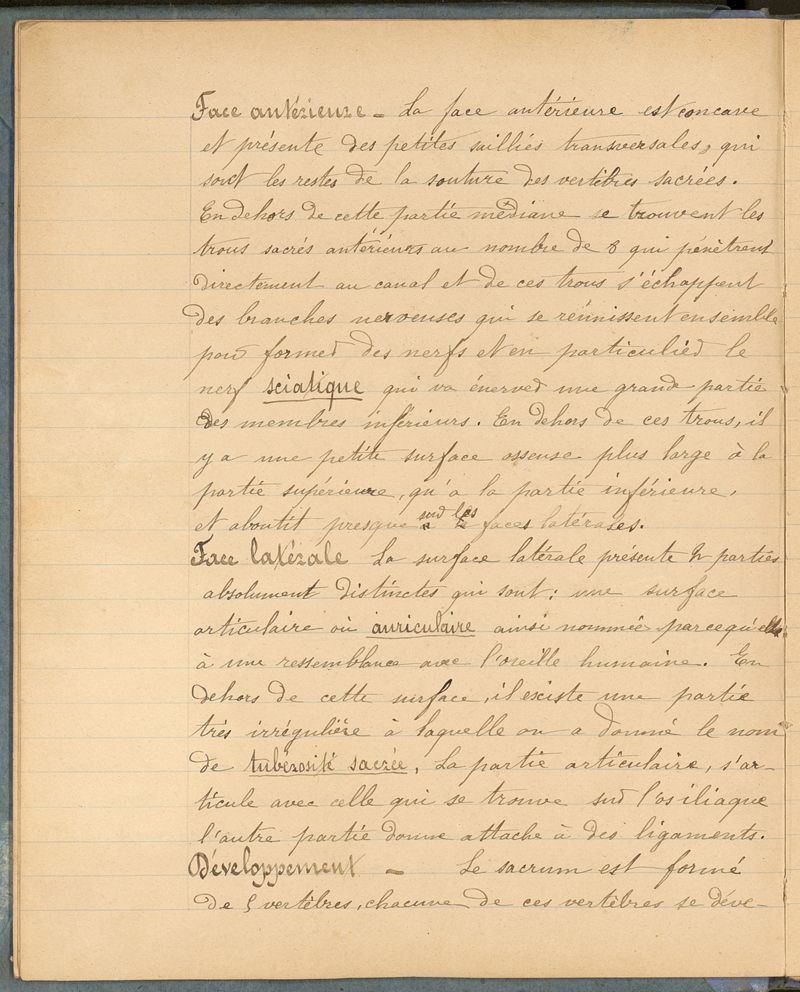 Face antérieure - La face antérieure est concave
et présente des petites saillies transversales, qui
sont les restes de la souture des vertèbres sacrées.
En dehors de cette partie médiane se trouvent les
trous sacrés antérieurs au nombre de 8 qui pénètrent
directement au canal et de ces trous s'échappent
des branches nerveuses qui se réunissent ensemble
pour former des nerfs et en particulier le
nerf sciatique qui va énerver une grand partie
des membres inférieurs. En dehors de ces trous, il
y a une petite surface osseuse plus large à la
partie supérieure, qu'a la partie inférieure,
et aboutit presque sur les faces latérales.
Face latérale La surface latérale présente 2 parties
absolument distinctes qui sont : une surface
articulaire où auriculaire ainsi nommée parcequ'elle
à une ressemblance avec l'oreille humaine. En
dehors de cette surface, il existe une partie
très irrégulière à laquelle on a donné le nom
de tubérosité sacrée, La partie articulaire, s'ar-
ticule avec celle qui se trouve sur l'os iliaque
l'autre partie donne attache à des ligaments.
Développement - Le sacrum est formé
de 5 vertèbres, chacune de ces vertèbres se déve-